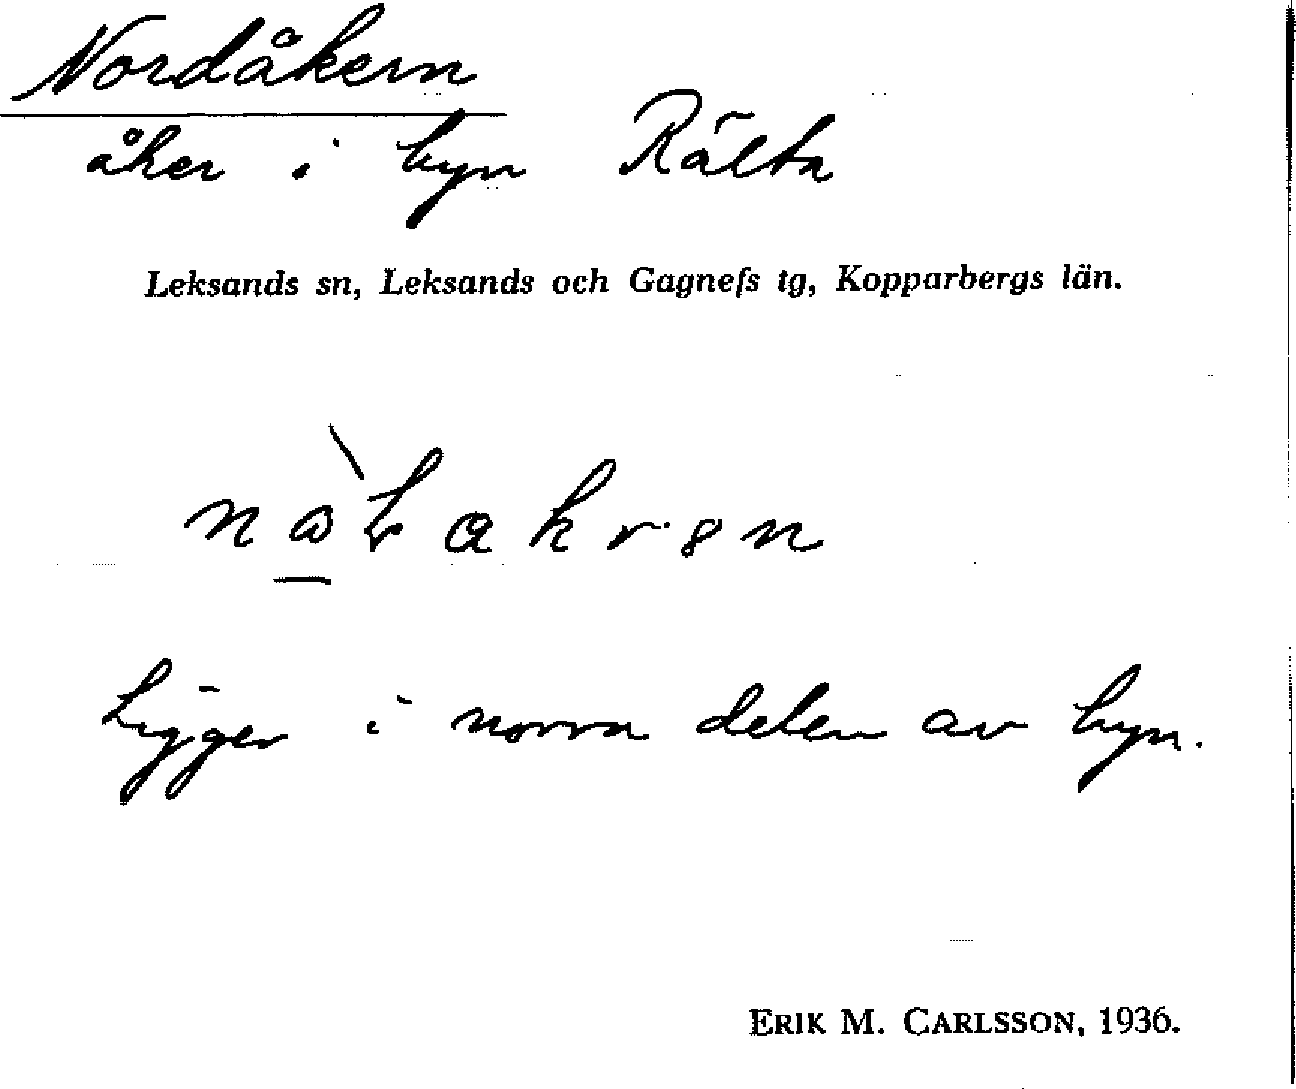 Nordåkern
åker i byn Rälta
Leksands sn, Leksands och Gagnefs tg, Kopparbergs län.
Ligger i norra delen av byn.
ERIK M. CARLSSON, 1936.